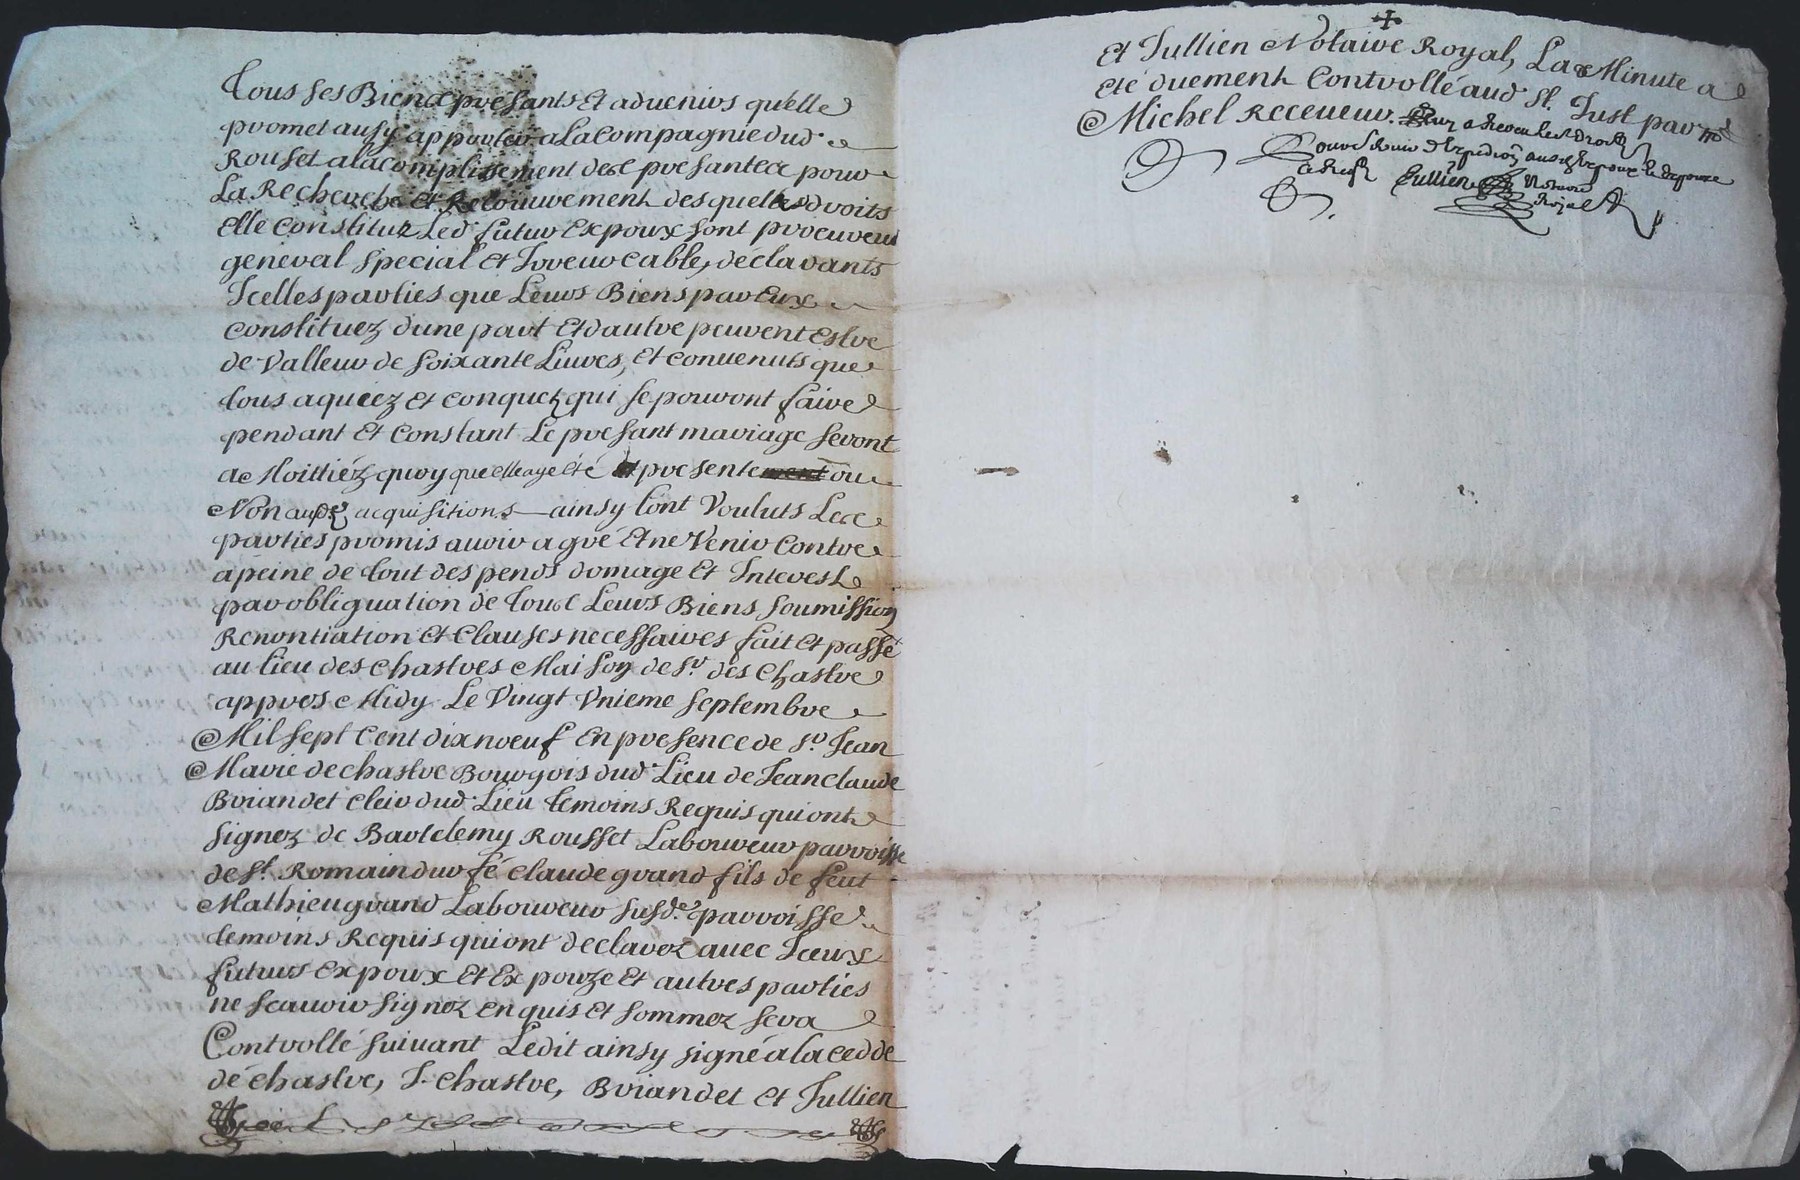 Tous ses Biens présants Et aduenirs qu'elle
promet ausy apporter a La Compagnie dud.
Rouset a lacomplissement des présantes pour
La Recherche Et Recouurement desquelles droits
Elle Constitue Led. futur Expoux sont procureur
general special Et Irreuocable, déclarants
Icelles parties que Leurs Biens par Eux
Constituez dune part Et dautre peuvent Estre
de Valleur de soixante Liures, Et Conuenuts que
tous aquiez Et Conquetz qui se pouront faire
pendant Et Constant Le présant mariage seront
a Moittiéz quoy que elle aye été présente ou
Non auxdes acquisitions ainsy Lont Vouluts Les
parties promis auoir agré Et ne Venir Contre
apeine de tout despends domage Et Interest
par obliguation de Tous Leurs Biens soumission
Renontiation Et Clauses necessaires fait Et passé
au lieu des Chastres Maison de Sr. des Chastre
appres Midy Le Vingt Vnieme septembre
Mil sept Cent dix noeuf En presence de Sr. Jean
Marie dechastre Bourgois dud. Lieu de Jean Claude
Briandet Cleir dud. Lieu temoins Requis qui ont
signez de Bartelemy Rousset Laboureur parroisse
de St. Romain durfé Claude grand fils de feut
Mathieu grand Laboureur susde. parroisse
temoins Requis qui ont declarez auec Iceux
futurs Expoux Et Expouze Et autres parties
ne scauoir signez Enquis Et sommez sera
Controllé suiuant Ledit ainsy signé a la cedde
déchastre, J. Chastre, Briandet Et Jullien
Et Jullien Notaire Royal, La Minute a
été duement Controllé aud. St. Just par Mr.
Michel Receueur.
Jullien Notaire
Royal